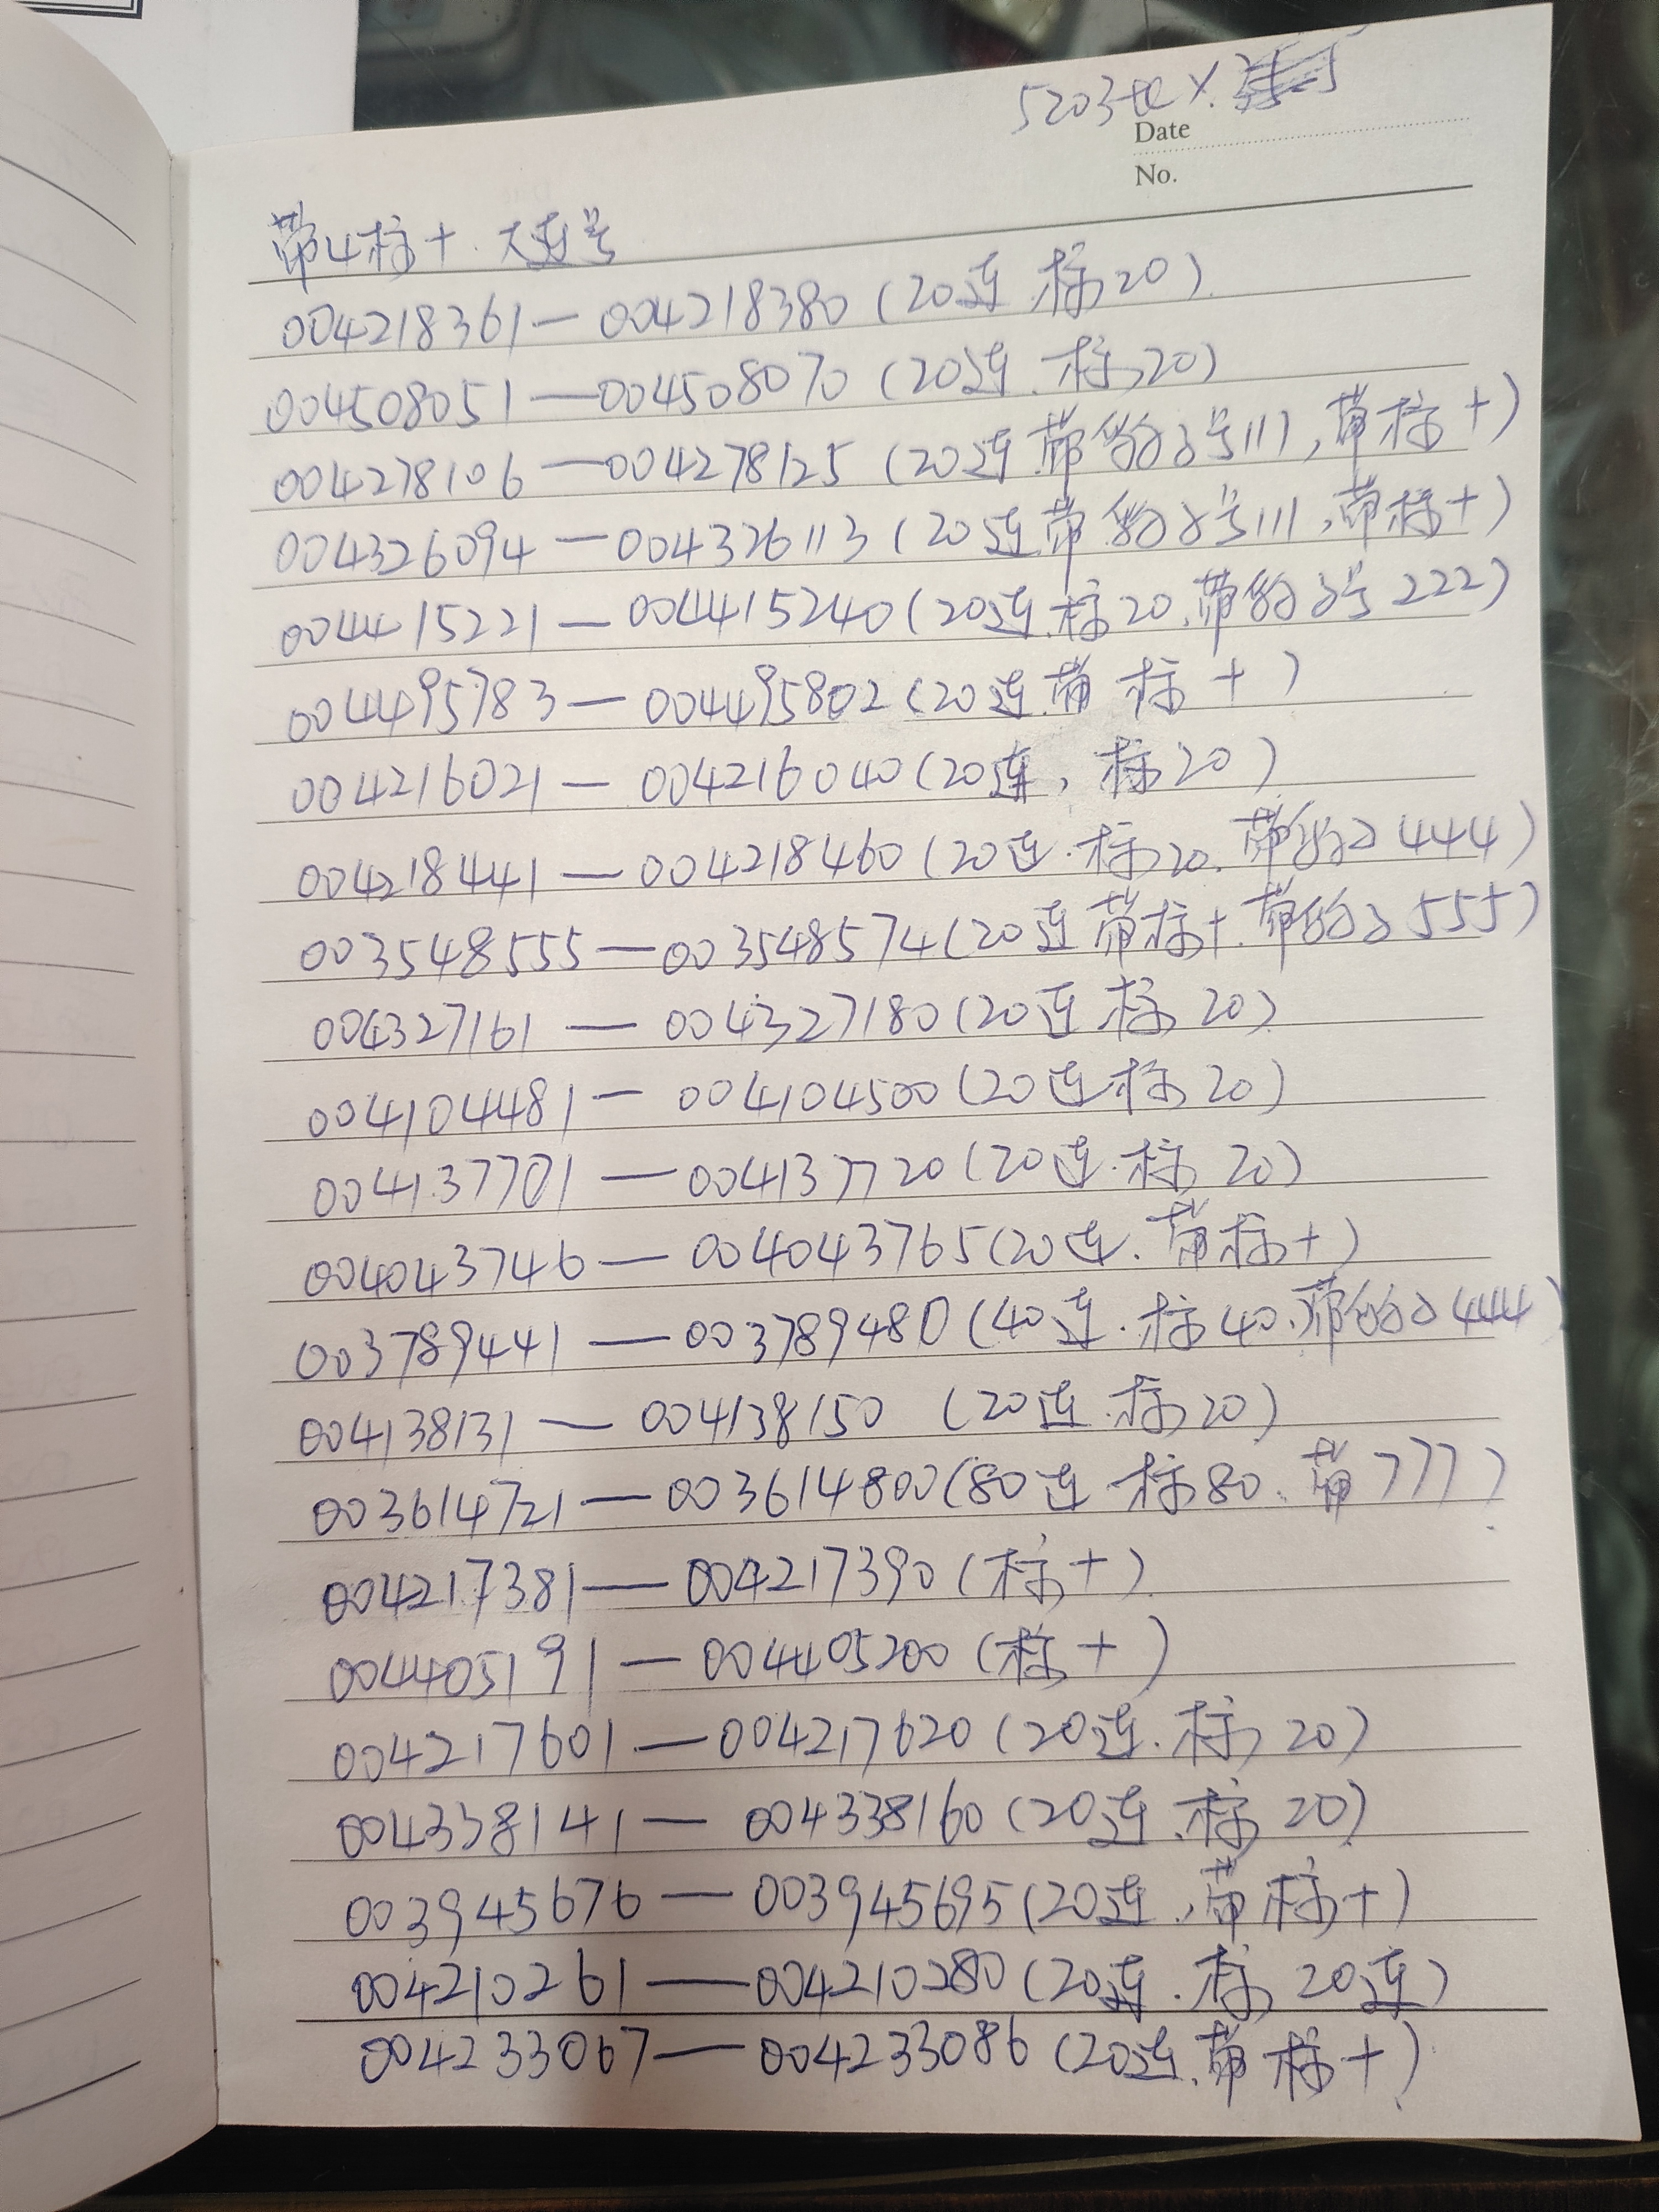 5203枚×
Date
No.
带4标十.大连号
004218361—004218380(20连.标20)
004508051—004508070(20连.标20)
004278106—004278125(20连.带豹子号111,带标十)
004326094—004326113(20连带豹子号111,带标十)
004415221—004415240(20连.标20.带豹子号222)
004495783—004495802(20连.带标十)
004216021—004216040(20连,标20)
004218441—004218460(20连.标20.带豹子444)
003548555—003548574(20连带标十.带豹子555)
004327161—004327180(20连.标20)
004104481—004104500(20连标20)
004137701—004137720(20连.标20)
004043746—004043765(20连.带标十)
003789441—003789480(40连.标40.带豹子444)
004138131—004138150(20连.标20)
003614721—003614800(80连标80.带777)
004217381—004217390(标十)
004405191—004405200(标十)
004217601—004217620(20连.标20)
004338141—004338160(20连.标20)
003945676—003945695(20连.带标十)
004210261—004210280(20连.标20连)
004233067—004233086(20连.带标十)